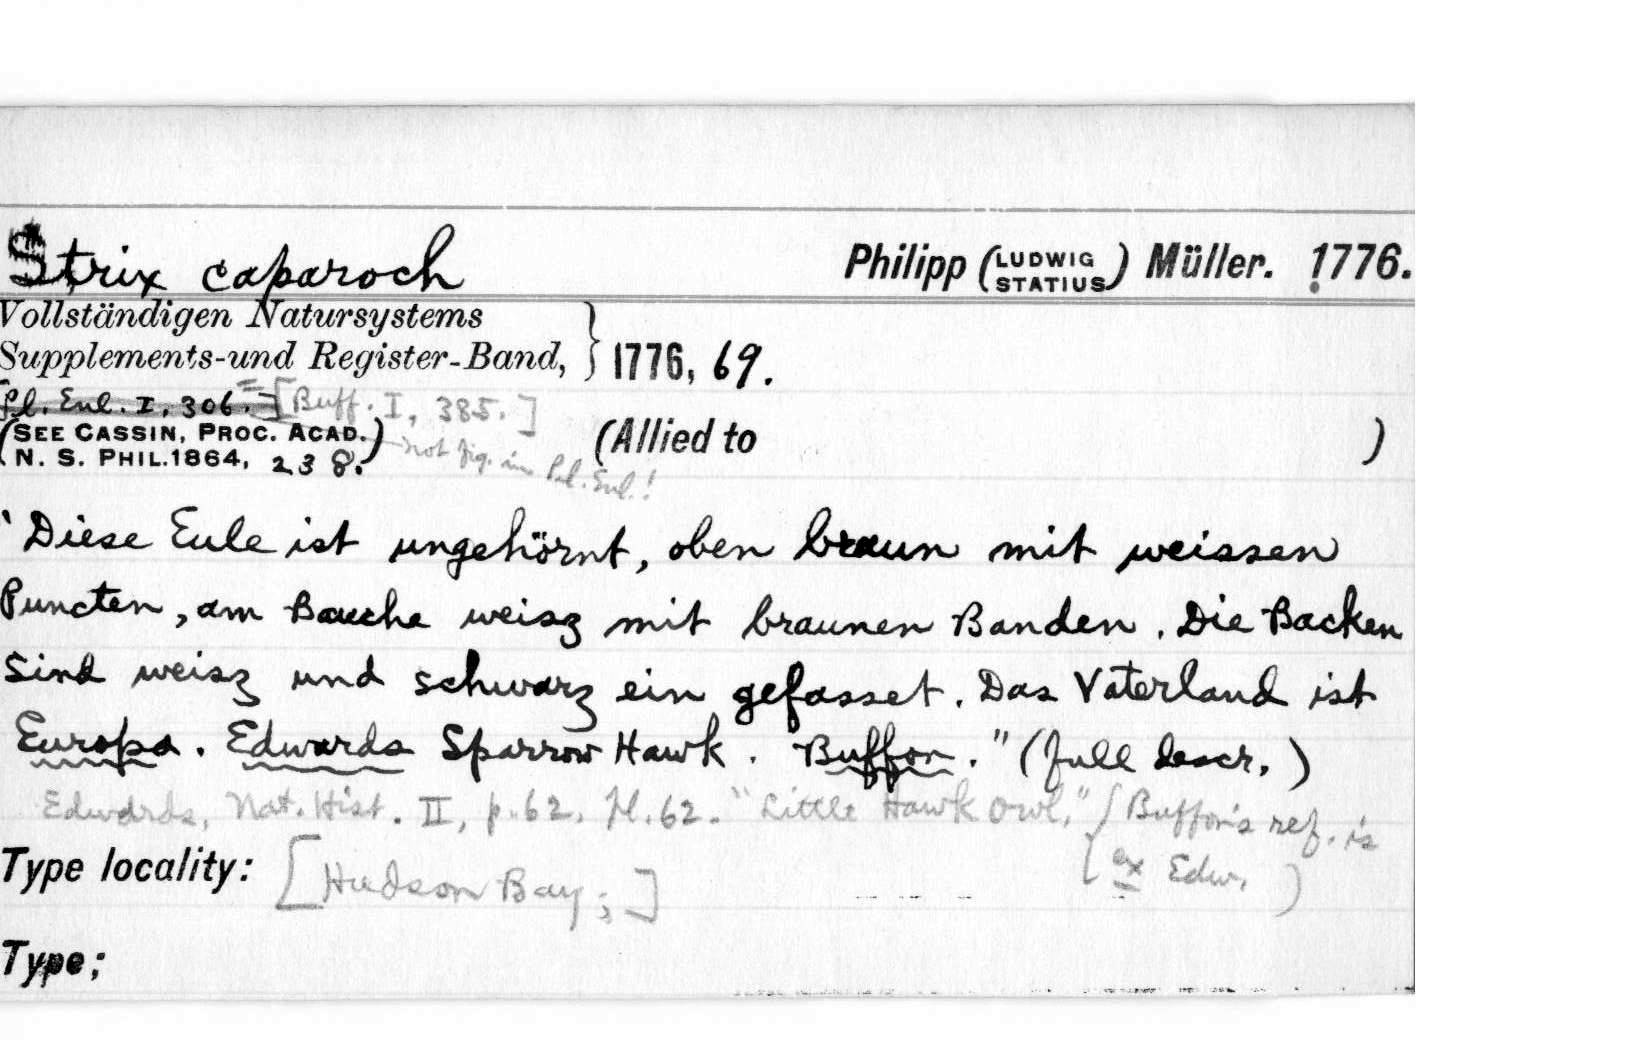 Strix caparoch Philipp (LUDWIG STATIUS) Müller. 1776.
Vollständigen Natursystems
Supplements-und Register-Band, } 1776, 69.
Pl. Enl. I, 306. = [Buff. I, 385.]
(SEE CASSIN, PROC. ACAD. N. S. PHIL. 1864, 238.) not fig. in Pl. Enl.! (Allied to )
"Diese Eule ist ungehörnt, oben braun mit weissen
Puncten, am Bauche weisz mit braunen Banden. Die Backen
sind weisz und schwarz ein gefasset. Das Vaterland ist
Europa. Edwards Sparrow Hawk. Buffon." (full descr.)
Edwards, Nat. Hist. II, p. 62, Pl. 62. "Little Hawk Owl," (Buffon's ref. is
ex Edw.)
Type locality: [Hudson Bay;]
Type;